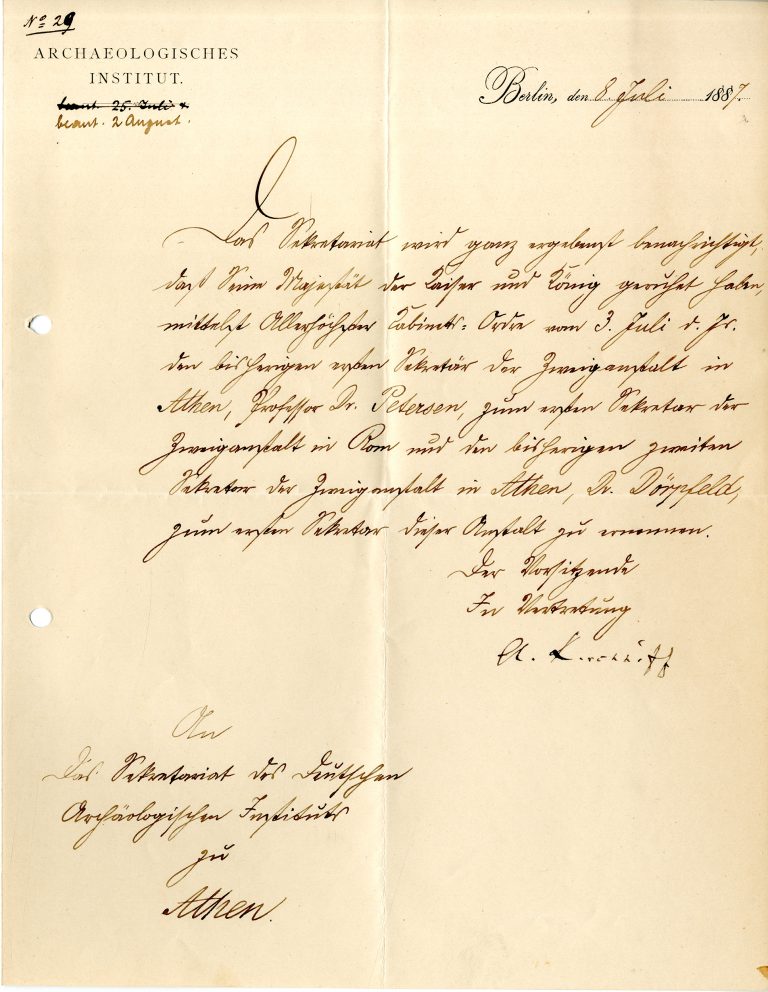 No 29
ARCHAEOLOGISCHES
INSTITUT.
beant. 25. Juli
beant. 2 August.
Berlin, den 8 Juli 1887.
Das Sekretariat wird ganz ergebenst benachrichtigt,
daß Seine Majestät der Kaiser und König geruhet haben,
mittelst Allerhöchster Kabinets-Ordre vom 3. Juli d. Js.
den bisherigen ersten Sekretär der Zweiganstalt in
Athen, Professor Dr. Petersen, zum ersten Sekretar der
Zweiganstalt in Rom und den bisherigen zweiten
Sekretar der Zweiganstalt in Athen, Dr. Dörpfeld,
zum ersten Sekretar dieser Anstalt zu ernennen.
Der Vorsitzende
In Vertretung
A. Kirchhoff
An
Das Sekretariat des Deutschen
Archäologischen Instituts
zu
Athen.